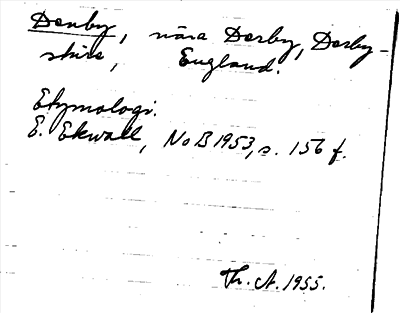 Denby, nära Derby, Derby-
shire, England.
Etymologi.
E. Ekwall, NoB 1953, s. 156 f.
Th. A. 1955.